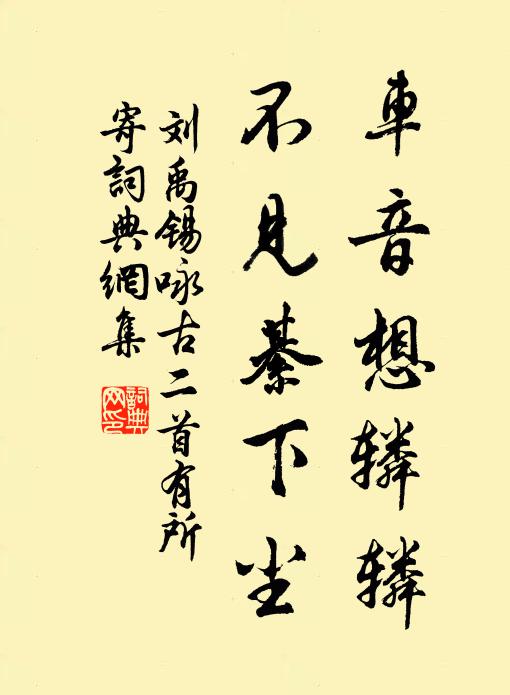 車音想辚辚
不見綦下尘
刘禹锡咏古二首有所
寄詞典網集
詞典
网印